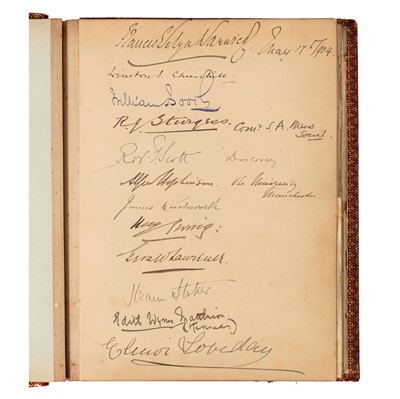 Frances Evelyn Warwick May 17th/1904.
Winston S. Churchill
William Booth
R J Sturgess. Com^r S. A. Mens Social
Rob^t F Scott Discovery
Alfred Hopkinson. The University Manchester
James Knatsworth
Gerald Lawrence
Bram Stoker
Edith Wynne Matthison
(Kennedy)
Elenor Loveday